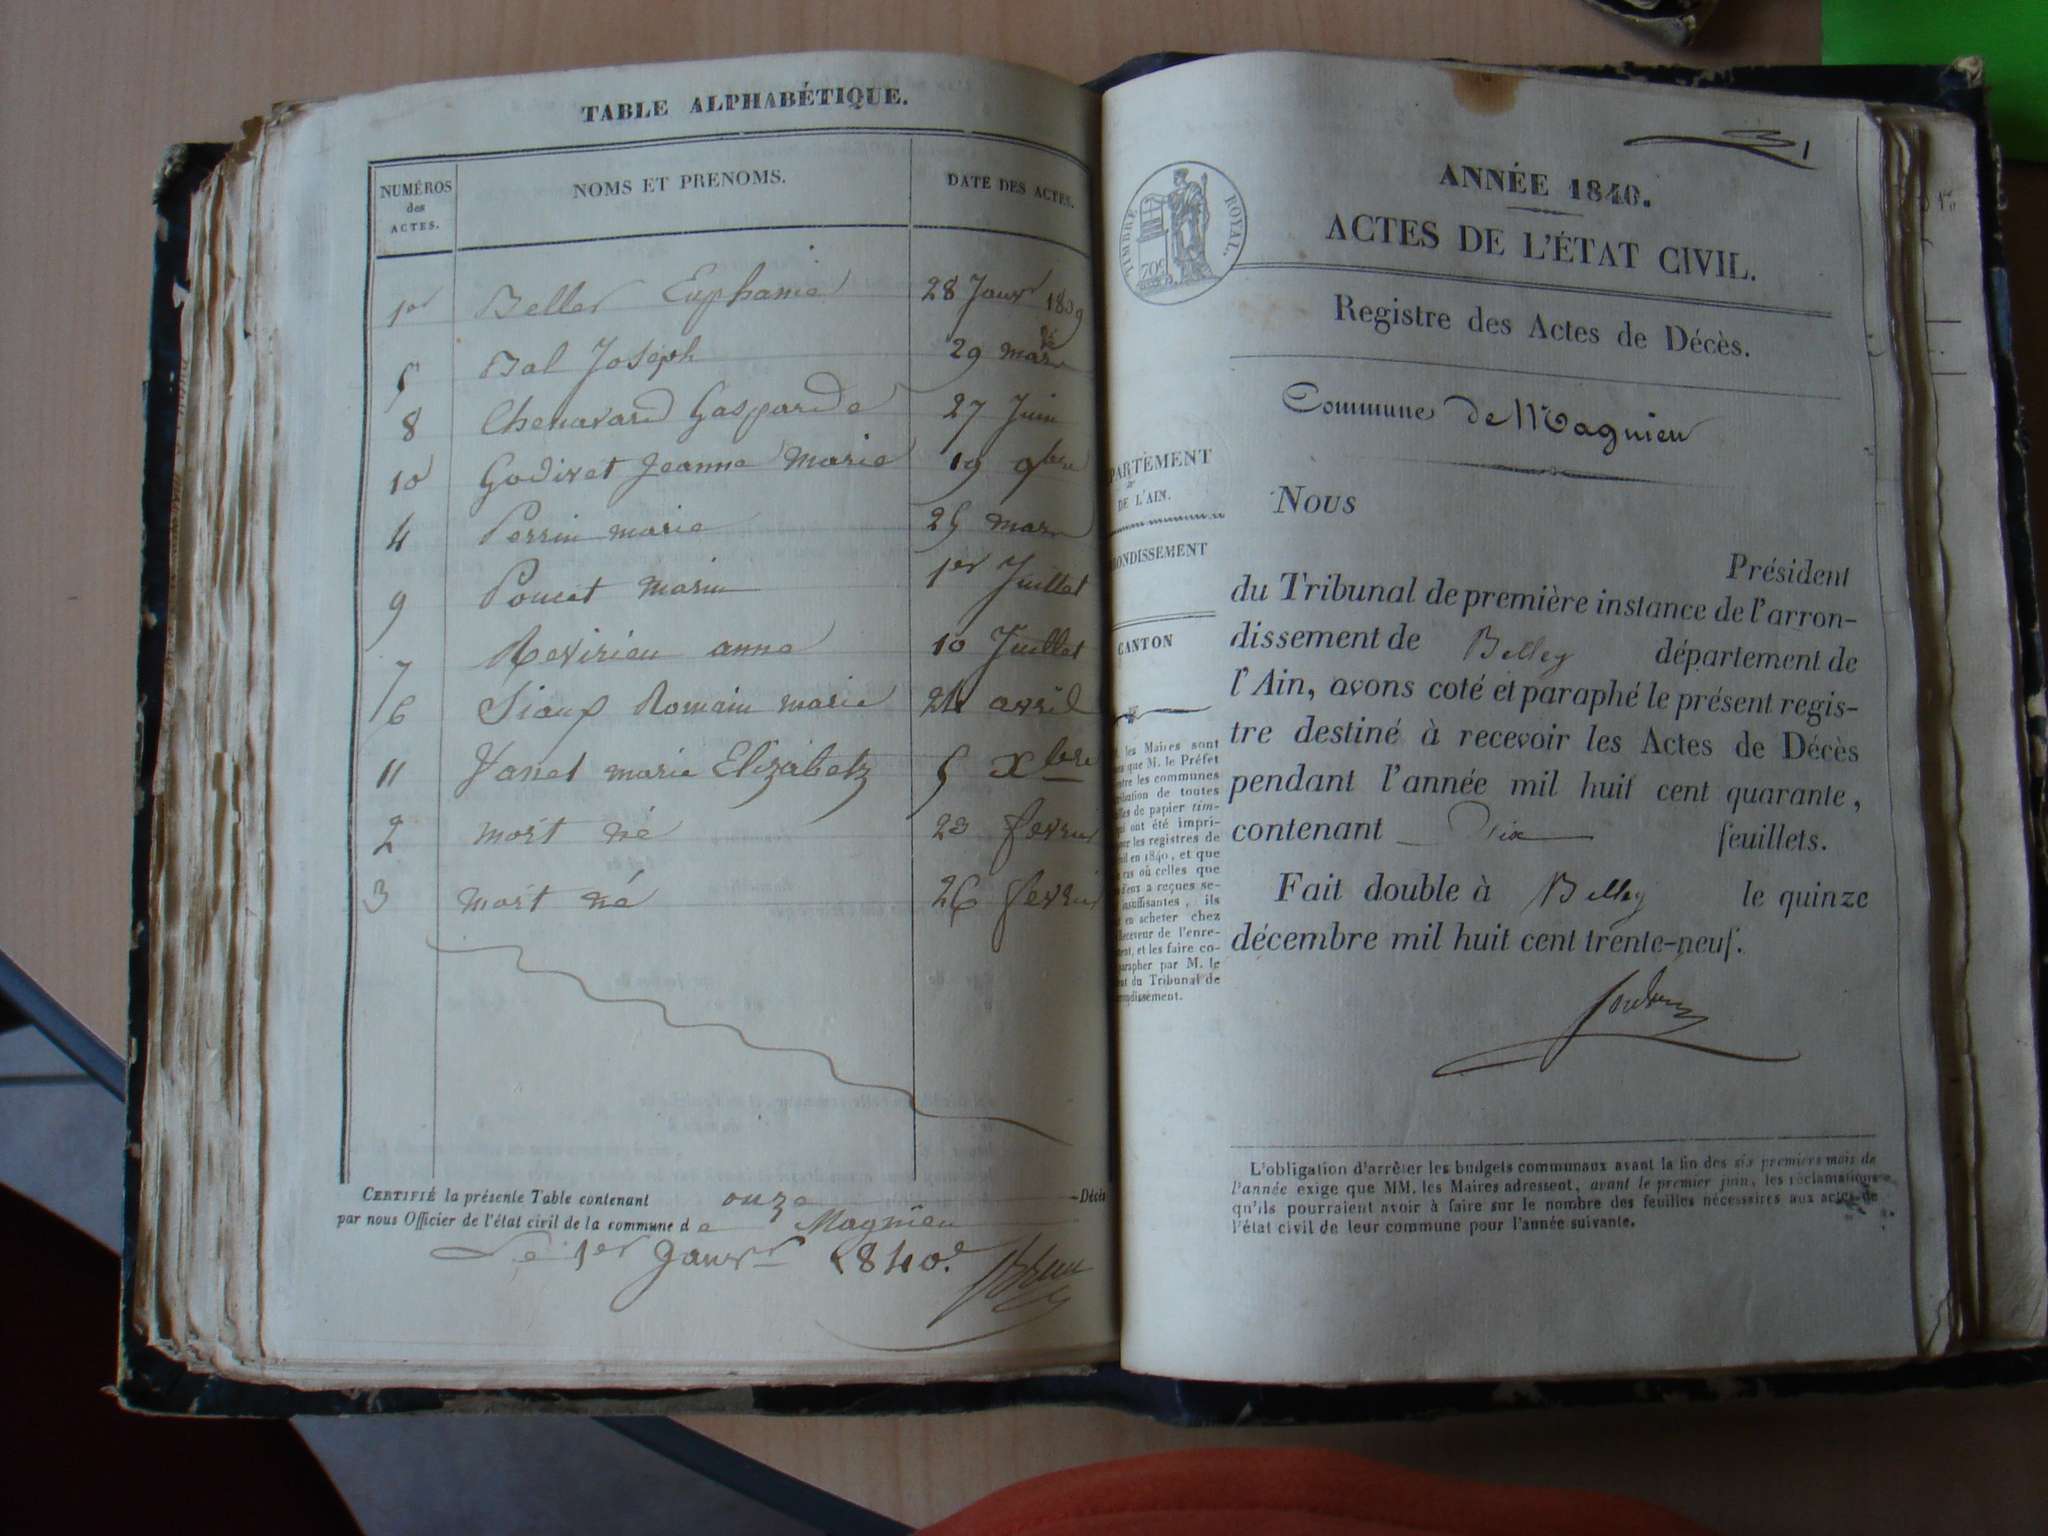 TABLE ALPHABÉTIQUE.
NUMÉROS des ACTES. NOMS ET PRENOMS. DATE DES ACTES.
1er Beller Euphanie 28 Janvr 1839
5 Bal Joseph 29 mars
8 Chenavard Gasparde 27 Juin
10 Godivet Jeanne Marie 19 9bre
4 Perrin marie 25 mars
9 Poncet marie 1er Juillet
7 Revirieu anne 10 Juillet
6 Sioux Romain marie 24 avril
11 Janet marie Elizabetz 5 Xbre
2 mort né 23 fevrier
3 mort né 26 fevrier
CERTIFIÉ la présente Table contenant onze Décès
par nous Officier de l'état civil de la commune de Magnieu
Le 1er Janvr 1840.
1
TIMBRE ROYAL.
70c
ANNÉE 1840.
ACTES DE L'ÉTAT CIVIL.
Registre des Actes de Décès.
Commune de Magnieu
PARTEMENT
DE L'AIN.
ONDISSEMENT
CANTON
les Maires sont
que M. le Préfet
les communes
de toutes
de papier tim-
ont été impri-
les registres de
en 1840, et que
cas où celles que
d'eux a reçues se-
insuffisantes, ils
en acheter chez
Receveur de l'enre-
et les faire co-
parapher par M. le
du Tribunal de
Nous
Président
du Tribunal de première instance de l'arron-
dissement de Belley département de
l'Ain, avons coté et paraphé le présent regis-
tre destiné à recevoir les Actes de Décès
pendant l'année mil huit cent quarante,
contenant Dix feuillets.
Fait double à Belley le quinze
décembre mil huit cent trente-neuf.
L'obligation d'arrêter les budgets communaux avant la fin des six premiers mois de
l'année exige que MM. les Maires adressent, avant le premier juin, les réclamations
qu'ils pourraient avoir à faire sur le nombre des feuilles nécessaires aux actes de
l'état civil de leur commune pour l'année suivante.